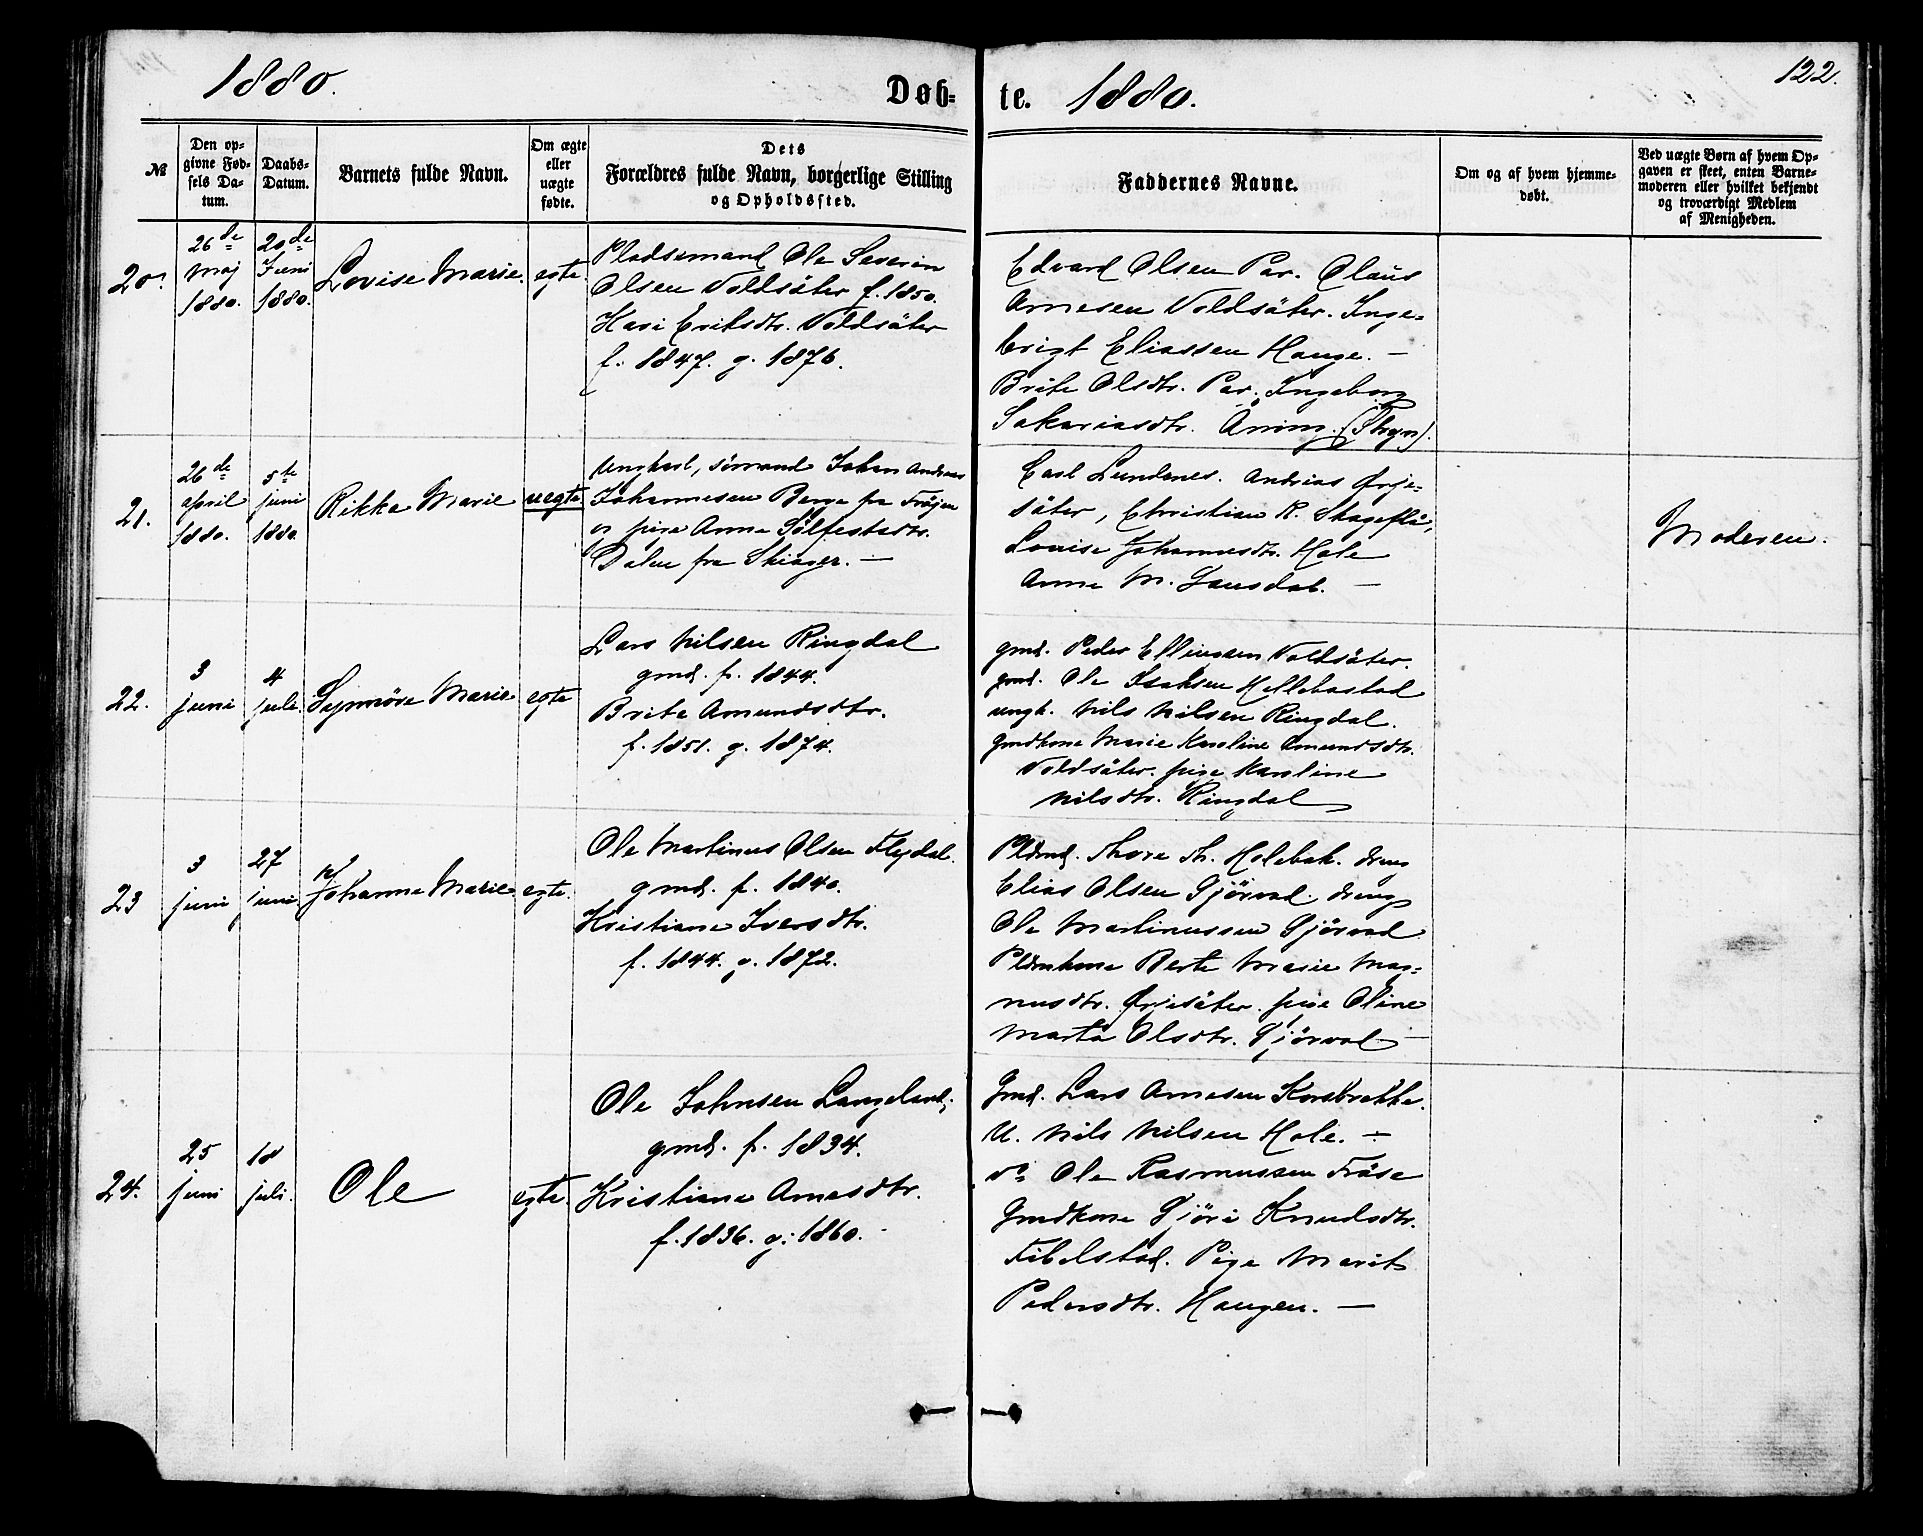 1880.
Døb-
te.
1880.
122.
№
Den op-
givne Fød-
sels Da-
tum.
Daabs-
Datum.
Barnets fulde Navn.
Om ægte
eller
uægte
fødte.
Dets
Forældres fulde Navn, borgerlige Stilling
og Opholdssted.
Faddernes Navne.
Om og af hvem hjemme-
døbt.
Ved uægte Børn af hvem Op-
gaven er skeet, enten Barne-
moderen eller hvilket bekjendt
og troværdigt Medlem
af Menigheden.
20.
26de
Maj
1880.
20de
Juni
1880.
Lovise Marie.
egte.
Pladsemand Ole Severin
Olsen Voldsäter f. 1850.
Kari Eriksdtr. Voldsäter
f. 1847. g. 1876.
Edvard Olsen Par. Olaus
Arnesen Voldsäter. Inge-
brigt Eliassen Hauge. —
Brite Olsdtr. Par. Ingeborg
Sakariasdtr.
21.
26de
april
1880.
5te
juni
1880.
Rikka Marie
uegte
Ungkarl, sömand Johan Andreas
Johannesen Berge fra
og pige Anna Sölfestsdtr.
Dalen fra —
Carl Lundenes. Andrias Örje-
säter, Christian R. Skageflå,
Lovise Johannesdtr. Hole
Anna M. —
Moderen.
22.
3
juni
4
juli.
Synnöve Marie
egte
Lars Nilsen Ringdal
gmd. f. 1844.
Brite Amundsdtr.
f. 1851. g. 1874.
gmd. Peder Ellingsen Voldsäter.
gmd. Ole Isaksen Hellebostad
ungk. Nils Nilsen Ringdal.
gmdkone Marie Karoline Amundsdtr.
Voldsäter. pige Karoline
Nilsdtr. Ringdal
23
3
juni
27
juni
Johanna Marie.
egte.
Ole Martinus Olsen Flydal.
gmd. f. 1840.
Kristiane Iversdtr.
f. 1844. g. 1872.
Pldmd. Thore Th. Holebak. dreng
Elias Olsen Gjörvad. dreng
Ole Martinussen Gjörvad
Pldmkone Berte Marie Mag-
nusdtr. Örjesäter. pige Oline
Marta Olsdtr. Gjörvad —
24.
25
juni
18
juli.
Ole
egte.
Ole Johnsen Langeland,
gmd. f. 1834.
Kristiane Arnesdtr.
f. 1836. g. 1860.
Gmd. Lars Arnesen Korsbrekke.
U. Nils Nilsen Hole. —
do Ole Rasmussen Fröse
Gmdkone Gjöri Knudsdtr.
Fibelstad. Pige Marit
Pedersdtr. Haugen. —